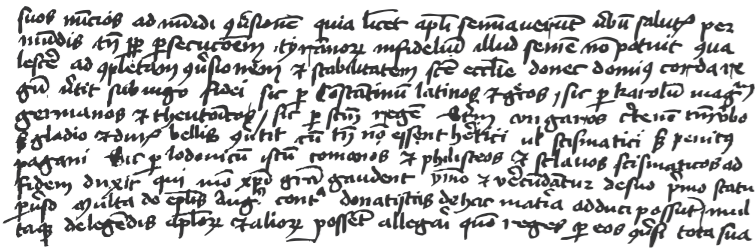 suos nūcios ad mūdi ꝯũsionē quia licet apłi semīaverūt ũbum salutꝭ per
mūdis tñ ꝓpꝑ ꝑsecucōem tyrānorꝝ infideliū illud semē nō potuit qua
lescē ad ꝯpletam ꝯũsionem et stabilitatem scē ecclie donec domiꝰ corda re
gū ũtit sub iugo fidei sic ꝑ Cōstatinum latinos et gͣcos, sic ꝑ karolum magͫ
germanos et theutoicos, sic ꝑ scūm regē ungaros
gladio et durꝭ bellis ꝯũtit cū tñ nō essent hetici ul scismatici sꝫ penitus
pagani Sic ꝑ lodovicum istū comanos et philisteos et sclavos scismaticos ad
fidem duxit qui mō xp̄o grām gaudent ymo et verecūdātur de suo pͥmo statu
Multa de eplis Augͥ contͣ donatistas de hac matia adduci possūt, mul
taqꝫ de legēdis aplorꝝ et aliorꝝ possēt allegāi quō reges ꝑ eos ꝯũsi tota sua